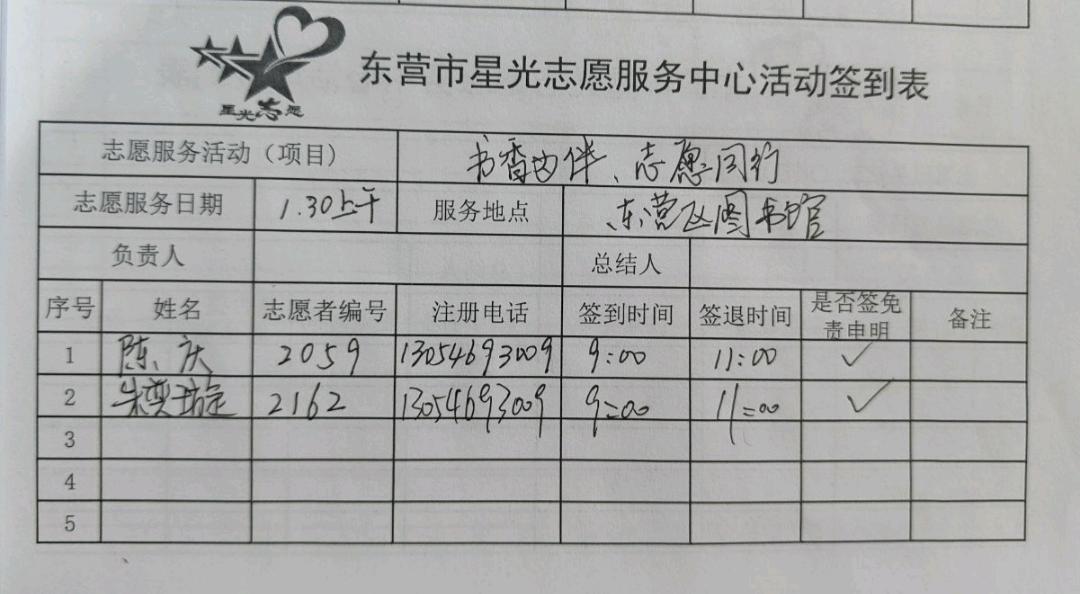 星光志愿
东营市星光志愿服务中心活动签到表
志愿服务活动（项目） 书香由伴、志愿同行
志愿服务日期 1.30上午 服务地点 东营区图书馆
负责人 总结人
序号 姓名 志愿者编号 注册电话 签到时间 签退时间 是否签免责申明 备注
1 陈庆 2059 13054693009 9:00 11:00 ✓
2 朱 2162 13054693009 9:00 11:00 ✓
3
4
5